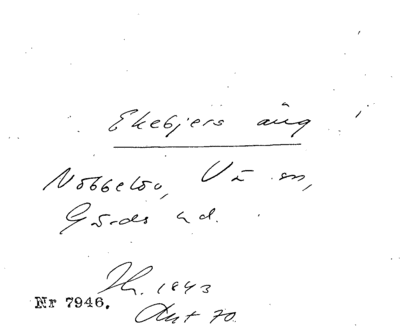 Ekebjers äng
Nöbbelöv, Vä sn,
Gärds hd.
1843
Nr 7946.
Akt 70